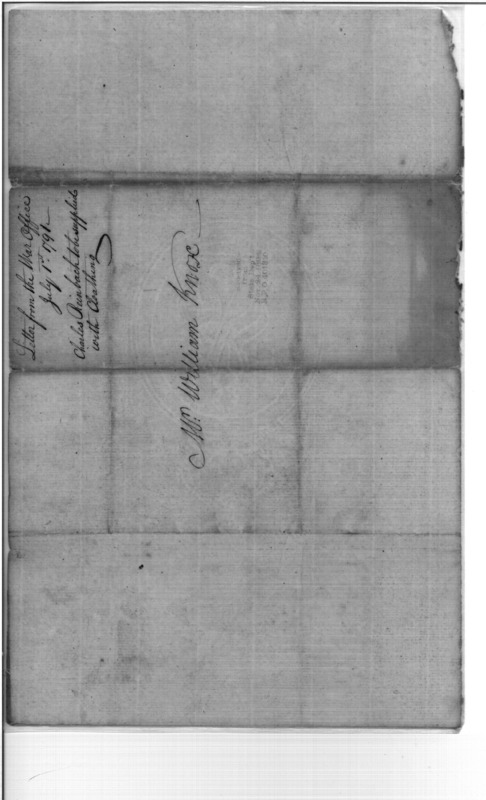 Letter from the War Office
July 1st 1791
Charles Reinback to be supplied
with Cloathing
Mr. William Knox